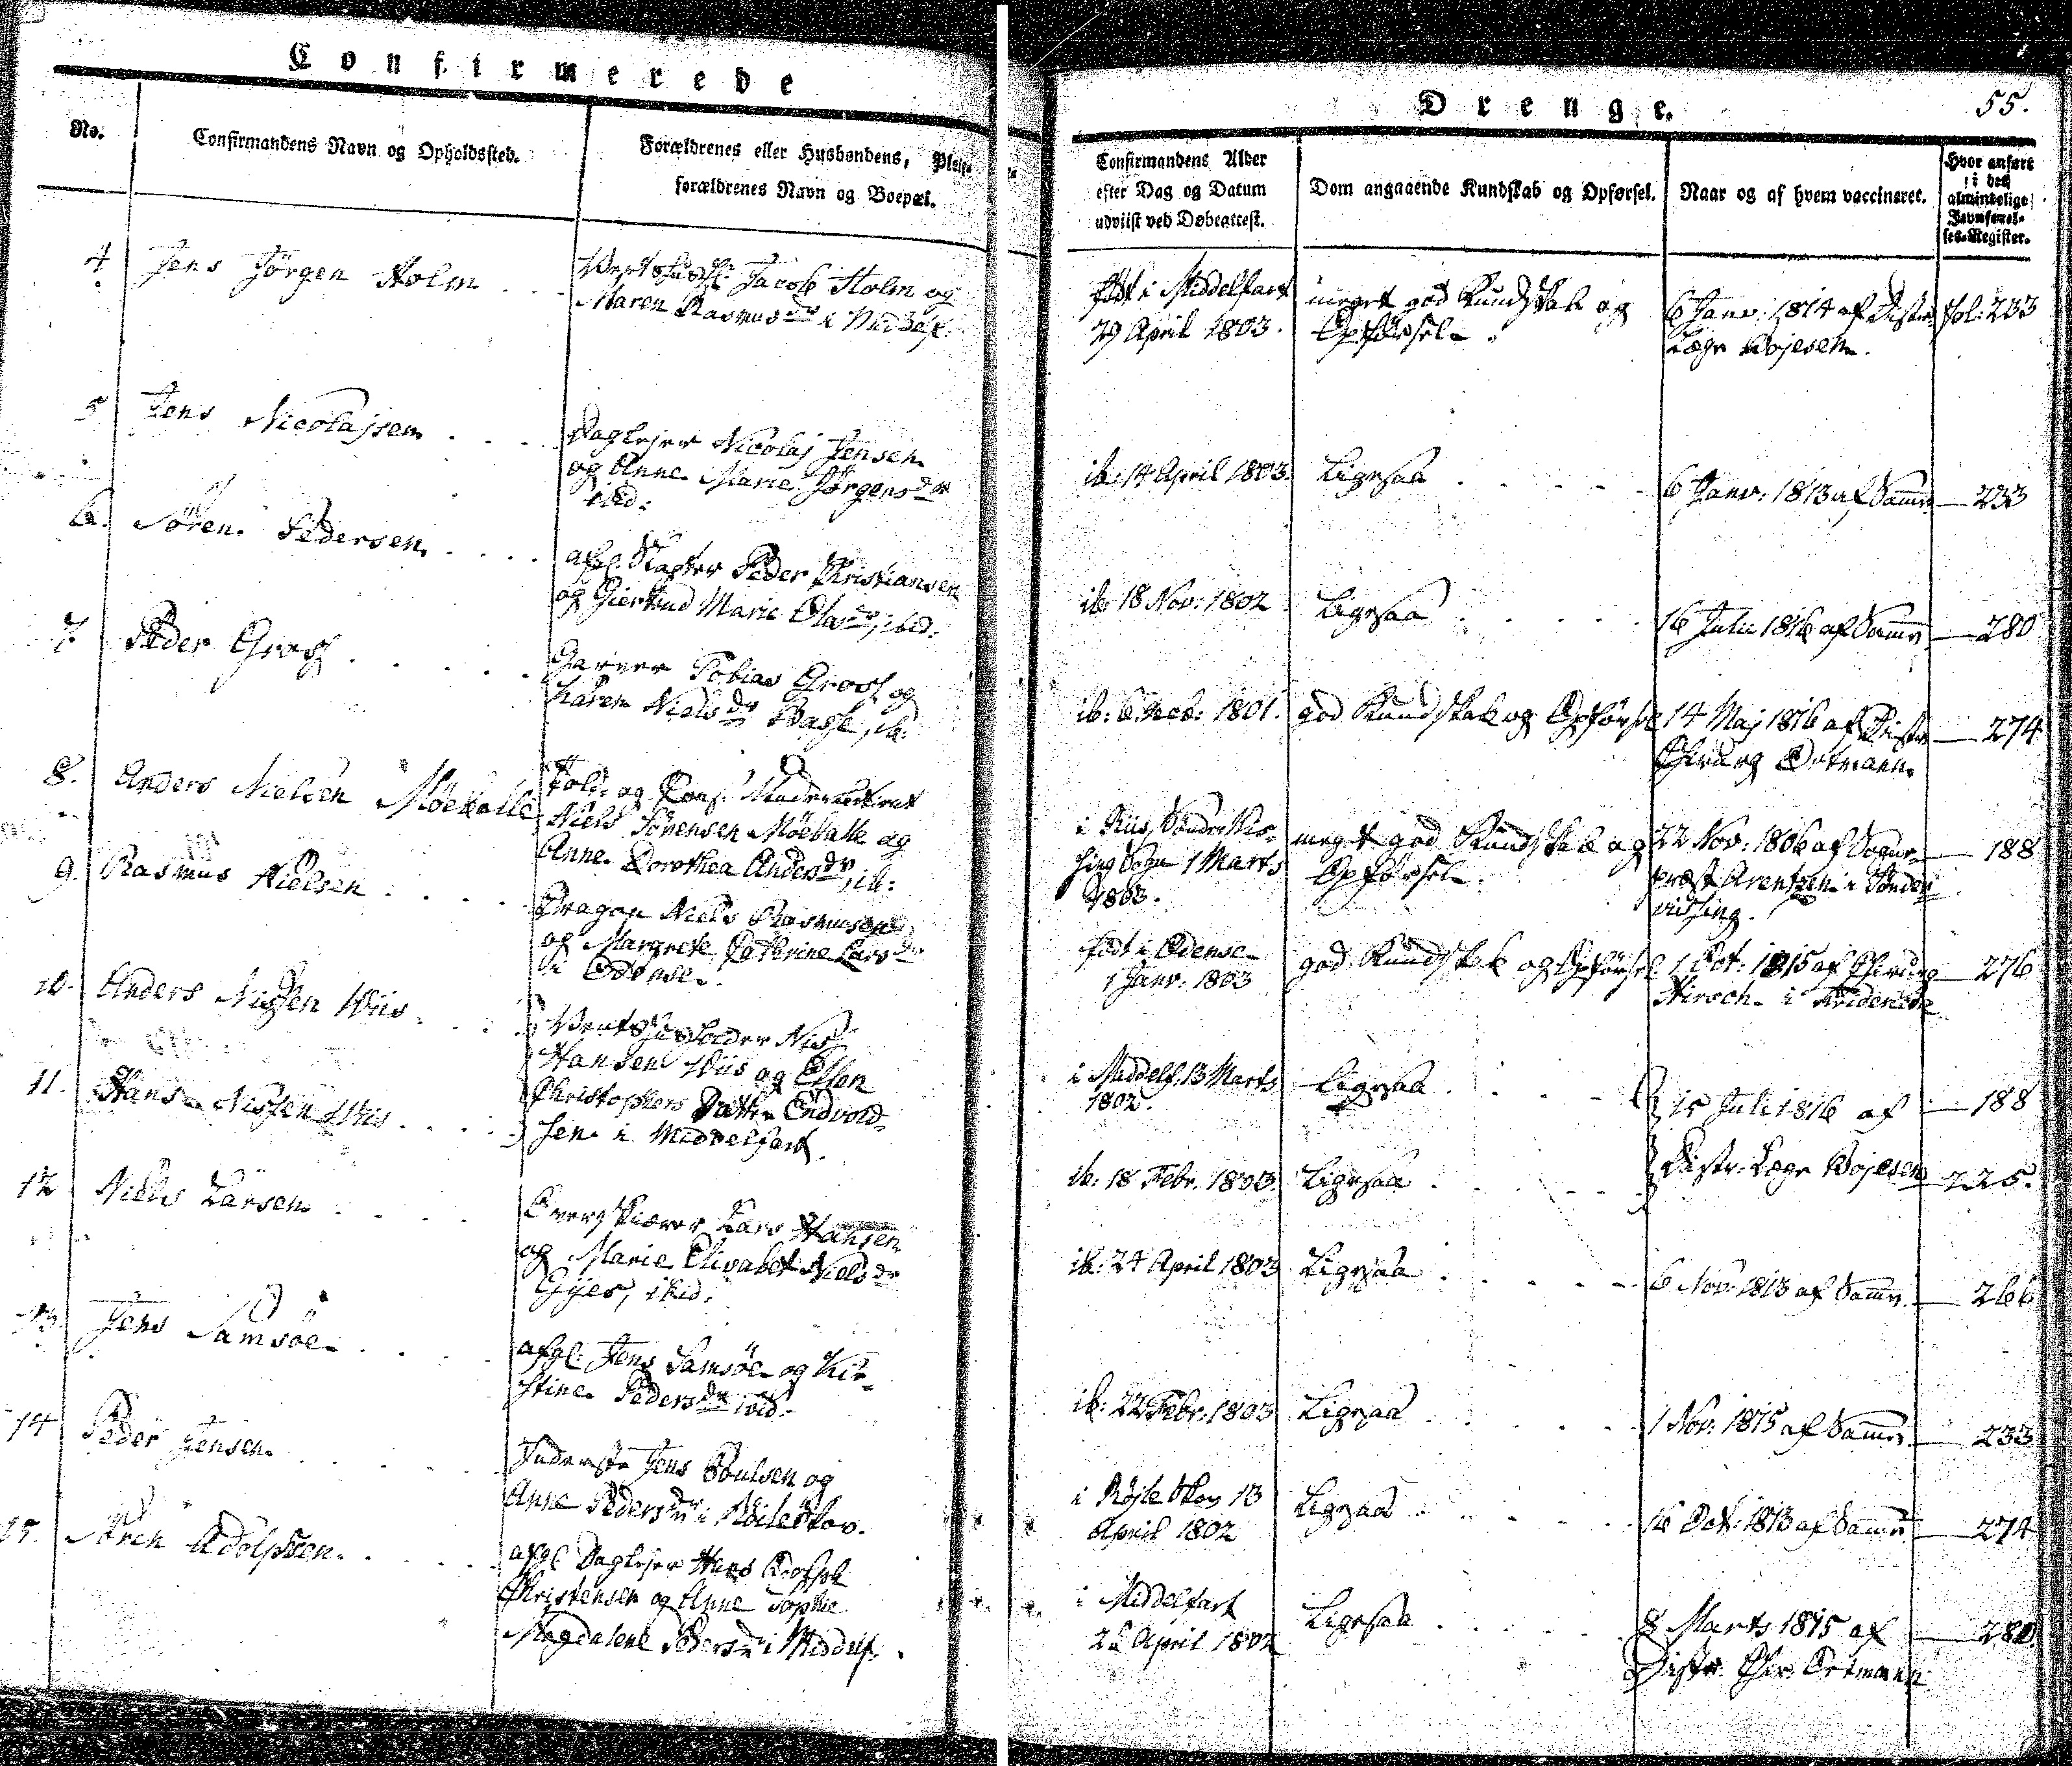 Confirmerede
No.
Confirmandens Navn og Opholdssted.
Forældrenes eller Husbondens, Pleie-
forældrenes Navn og Boepæl.
4 Jens Jörgen Holm
Jacob Holm og
Maren Rasmusdr i Middelf.
5 Jens Nicolajsen
Daglejer Nicolaj Jensen
og Anne Marie Jörgensdr
ibid:
6. Sören Pedersen
afgl. Peder Christiansen
og Giertrud Marie Olesdr, ibid.
7. Peder Gross
Garver Tobias Gross og
Karen Nielsdr Basse, ib:
8. Anders Nielsen Möeballe
Told- og Cons.
Niels Sörensen Möeballe og
Anne Dorothea Andersdr, ib:
9. Rasmus Nielsen
Dragon Niels Rasmusen
og Margrete Catherine Larsdr
i Odense.
10. Anders Nissen Wiis
Vertshuusholder Nis
Hansen Wiis og Ellen
Christophers Datter Endvold-
sen i Middelfart.
11. Hans Nissen Wiis
12 Niels Larsen
Lars Hansen
og Marie Elisabet Nielsdr
Gjes, ibid.
13. Jens Samsöe
afgl: Jens Samsöe og Kir-
stine Pedersdr ibid.
14 Peder Jensen
Inderste Jens Poulsen og
Anne Pedersdr i Röileskov.
15. Sören Adolphsen
afgl. Daglejer Hans
Christensen og Anne Sophie
Magdalene Pedersdr i Middelf.
Drenge.
55.
Confirmandens Alder
efter Dag og Datum
udviist ved Døbeattest.
Dom angaaende Kundskab og Opførsel.
Naar og af hvem vaccineret.
Hvor anført
i det
almindelige
Jevnførel-
ses-Register.
født i Middelfart
29 April 1803.
meget god Kundskab og
Opførsel.
6 Janv: 1814 af Distr.
Læge Bojesen.
fol: 233
ib: 14 April 1803.
Ligesaa
6 Janv: 1813 af Samme
233
ib: 18 Nov: 1802
Ligesaa
16 Julii 1816 af Samme
280
ib: 6 Decb: 1801.
god Kundskab og Opførsel
14 Maj 1816 af Distr.
Chirurg Ortmann.
274
i Riis, Søndre Vis-
sing Sogn 1 Marts
1803.
meget god Kundskab og
Opførsel.
22 Nov: 1806 af Sogne-
præst Arentzen i Sönder
vissing.
188
født i Odense
1 Janv: 1803
god Kundskab og Opførsel
1 Oct: 1815 af Chirurg
Hirsch i
276
i Middelf. 13 Marts
1802.
Ligesaa
15 Juli 1816 af
Distr: Læge Bojesen
188
ib: 18 Febr. 1803
Ligesaa
225.
ib: 24 April 1803
Ligesaa
6 Nov: 1813 af Samme
266
ib: 22 Febr: 1803
Ligesaa
1 Nov: 1815 af Samme
233
i Röjle Skov 13
April 1802
Ligesaa
16 Oct: 1813 af Samme
274
i Middelfart
Ligesaa
8 Marts 1815 af
Distr. Chir. Ortmann
280